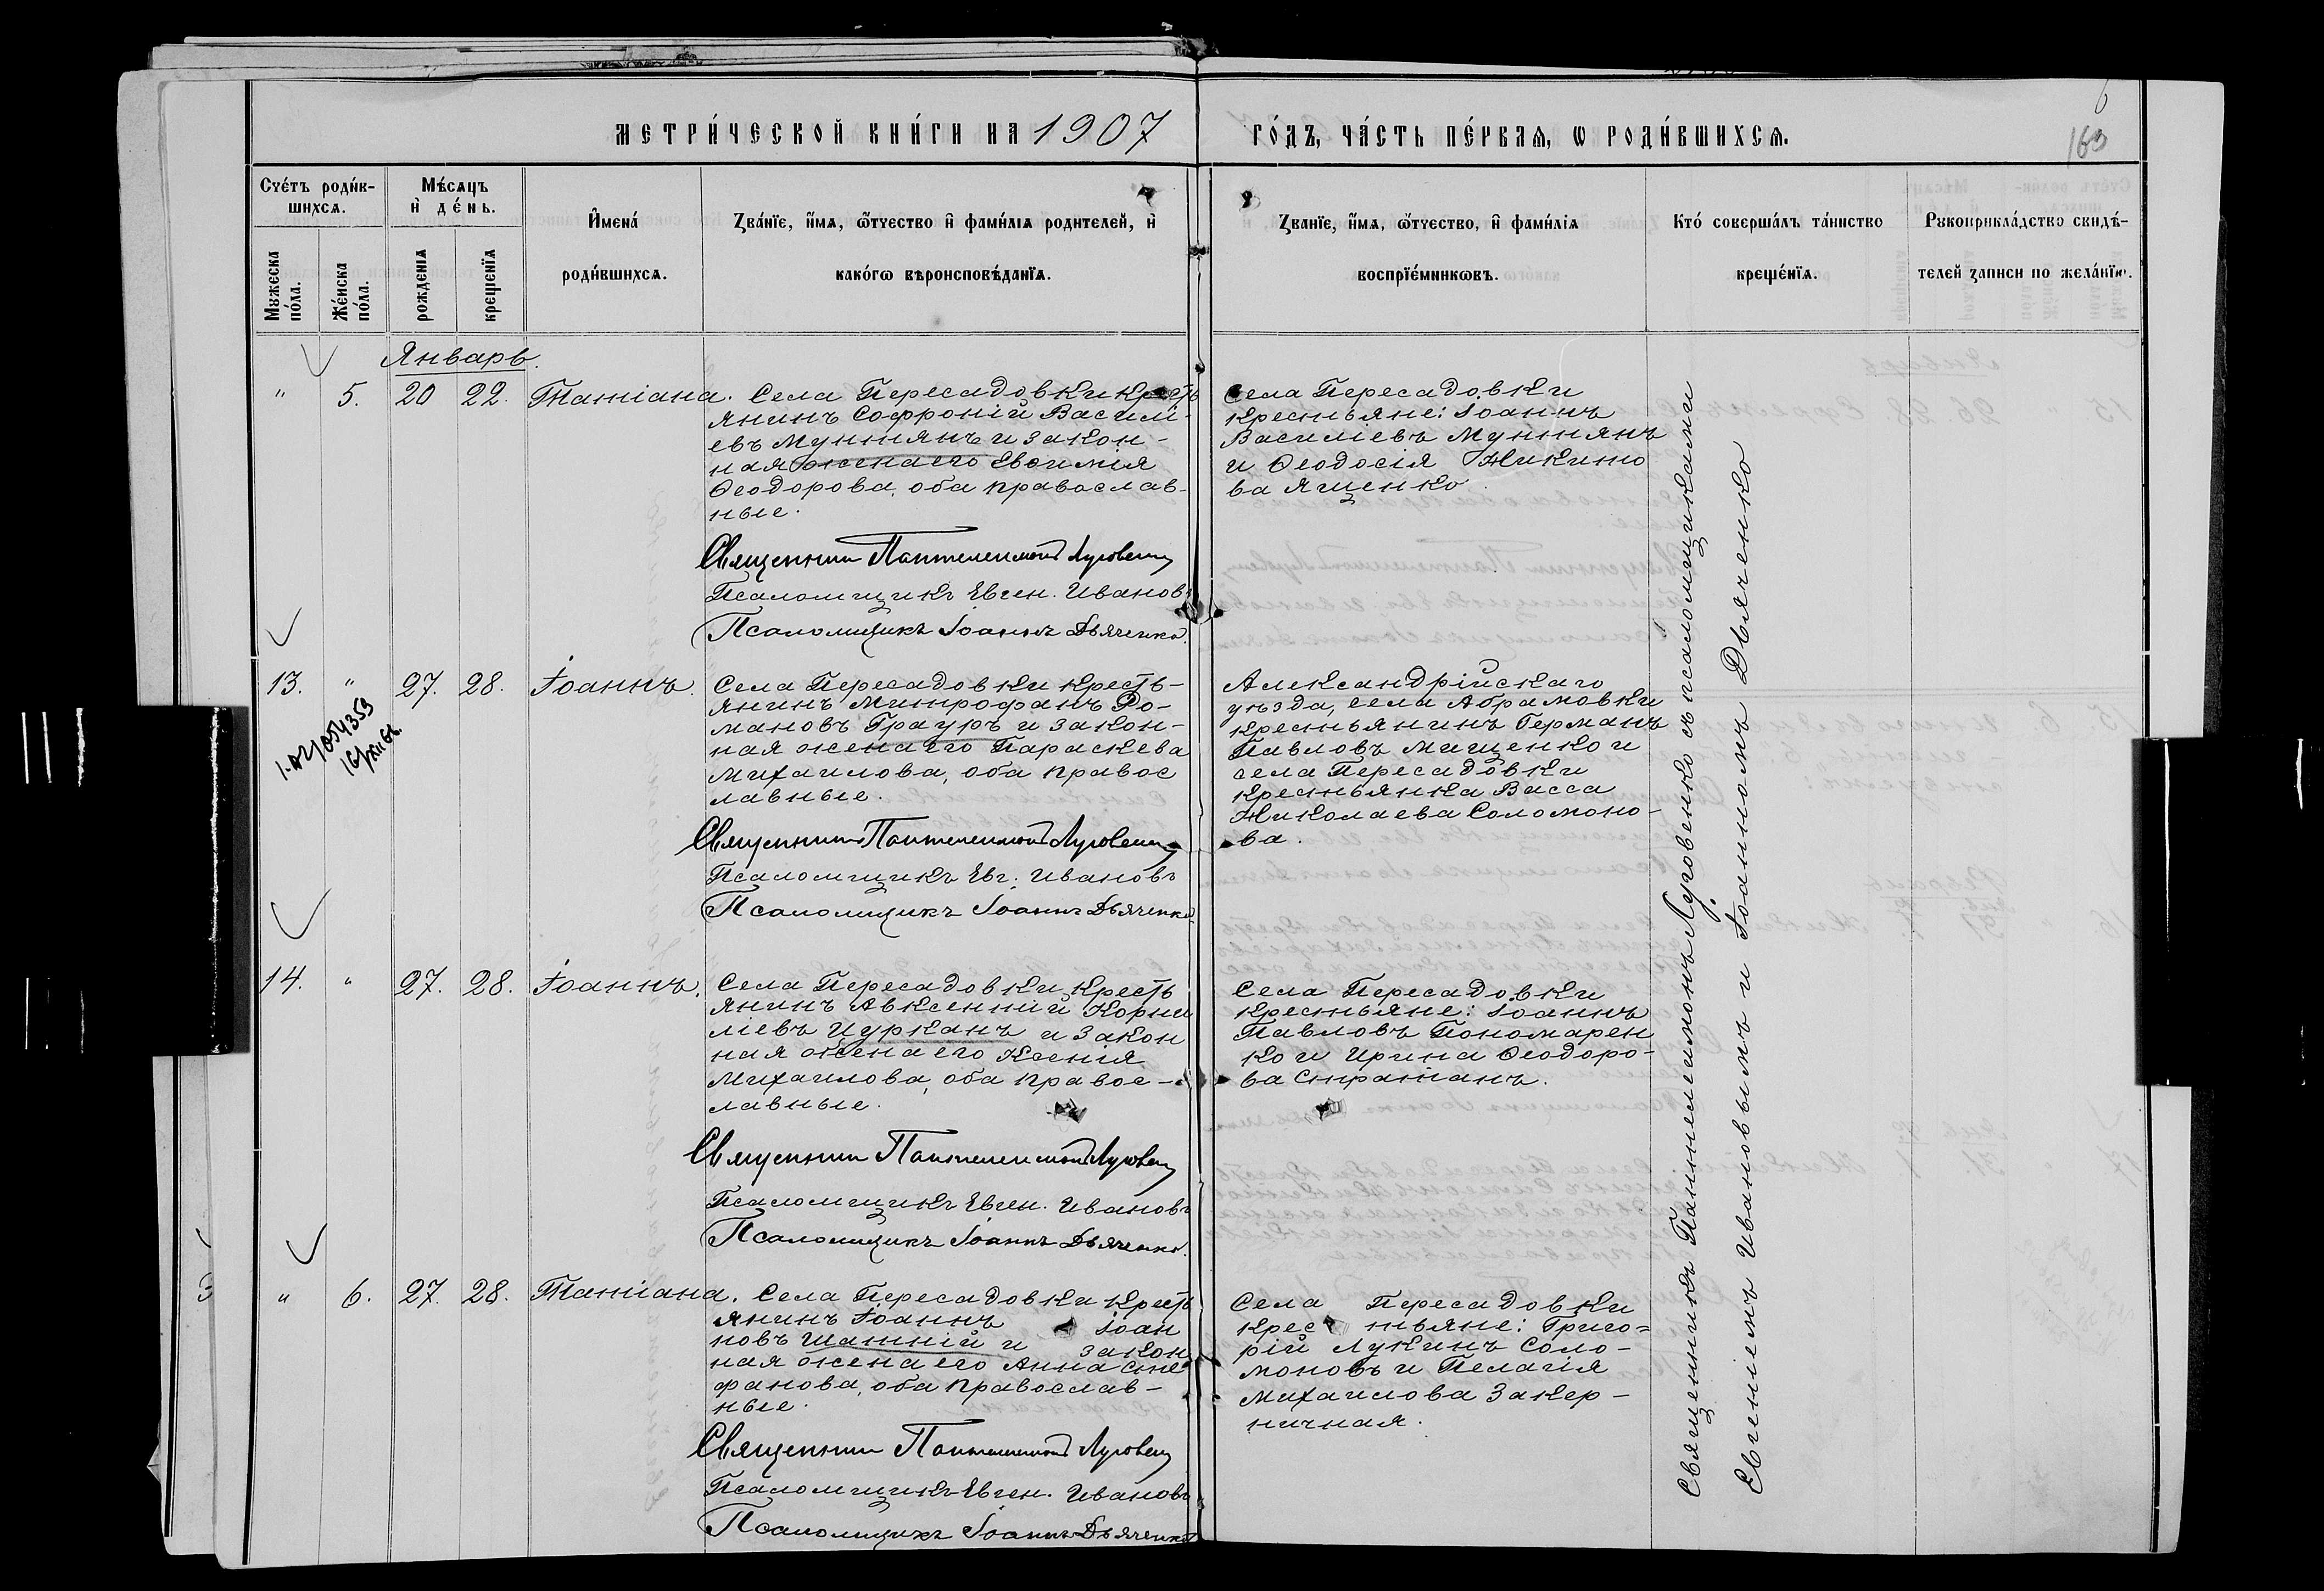 МЕТРИ́ЧЕСКОЙ КНИ́ГИ НА 1907 ГО́ДЪ, ЧА́СТЬ ПЕ́РВАѦ, Ѡ РОДИ́ВШИХСѦ.
163
Сче́тъ роди́вшихсѧ.
Мꙋжеска по́ла.
Же́нска по́ла.
Мѣ́сѧцъ и҆ де́нь.
рожденїѧ
крещенїѧ
И҆мена́ роди́вшихсѧ.
Зва́нїе, и҆́мѧ, ѻ҆́тчество и҆ фами́лїѧ родителей, и҆ како́гѡ вѣроисповѣ́данїѧ.
Зва́нїе, и҆́мѧ, ѻ҆́тчество, и҆ фами́лїѧ воспрїе́мникѡвъ.
Кто́ соверша́лъ та́инство креще́нїѧ.
Рꙋкоприкла́дство свидѣ́телей записи по жела́нїю.
Январь.
" 5. 20 22. Татіана.
Села Пересадовки кресть
янинъ Софроній Васили-
евъ Мунтянъ и закон-
ная жена его Евѳимія
Ѳеодорова, оба православ-
ные.
Священникъ Пантелеимонъ Луговенко
Псаломщикъ Евген. Ивановъ
Псаломщикъ Іоаннъ Дьяченко.
Села Пересадовки
крестьяне: Іоаннъ
Василіевъ Мунтянъ
и Ѳеодосія Никито
ва Ященко.
13. " 27. 28. Іоаннъ.
Села Пересадовки кресть-
янинъ Митрофанъ Ро-
мановъ Трауръ и закон-
ная жена его Параскева
Михаилова, оба правос
лавные.
Священникъ Пантелеимонъ Луговенко
Псаломщикъ Евг. Ивановъ
Псаломщикъ Іоаннъ Дьяченко.
Александрійскаго
уѣзда, села Абрамовки
крестьянинъ Германъ
Павловъ Мищенко и
села Пересадовки
крестьянка Васса
Николаева Соломоно-
ва.
14. " 27. 28. Іоаннъ.
Села Пересадовки кресть
янинъ Авксентій Корни
ліевъ Цурканъ и закон
ная жена его Ксенія
Михаилова, оба правос-
лавные.
Священникъ Пантелеимонъ Луговенко
Псаломщикъ Евген. Ивановъ
Псаломщикъ Іоаннъ Дьяченко.
Села Пересадовки
крестьяне: Іоаннъ
Павловъ Пономарен
ко и Ирина Ѳеодоро-
ва Стратанъ.
" 6. 27. 28. Татіана.
Села Пересадовки кресть
янинъ Іоаннъ Іоан
новъ Шатній и закон
ная жена его Анна Сте
фанова, оба православ-
ные.
Священникъ Пантелеимонъ Луговенко
Псаломщикъ Евген. Ивановъ
Псаломщикъ Іоаннъ Дьяченко
Села Пересадовки
крестьяне: Григо=
рій Лукинъ Соло-
моновъ и Пелагія
Михаилова Закер-
ничная.
Священникъ Пантелеимонъ Луговенко съ псаломщиками
Евгеніемъ Ивановымъ и Іоанномъ Дьяченко